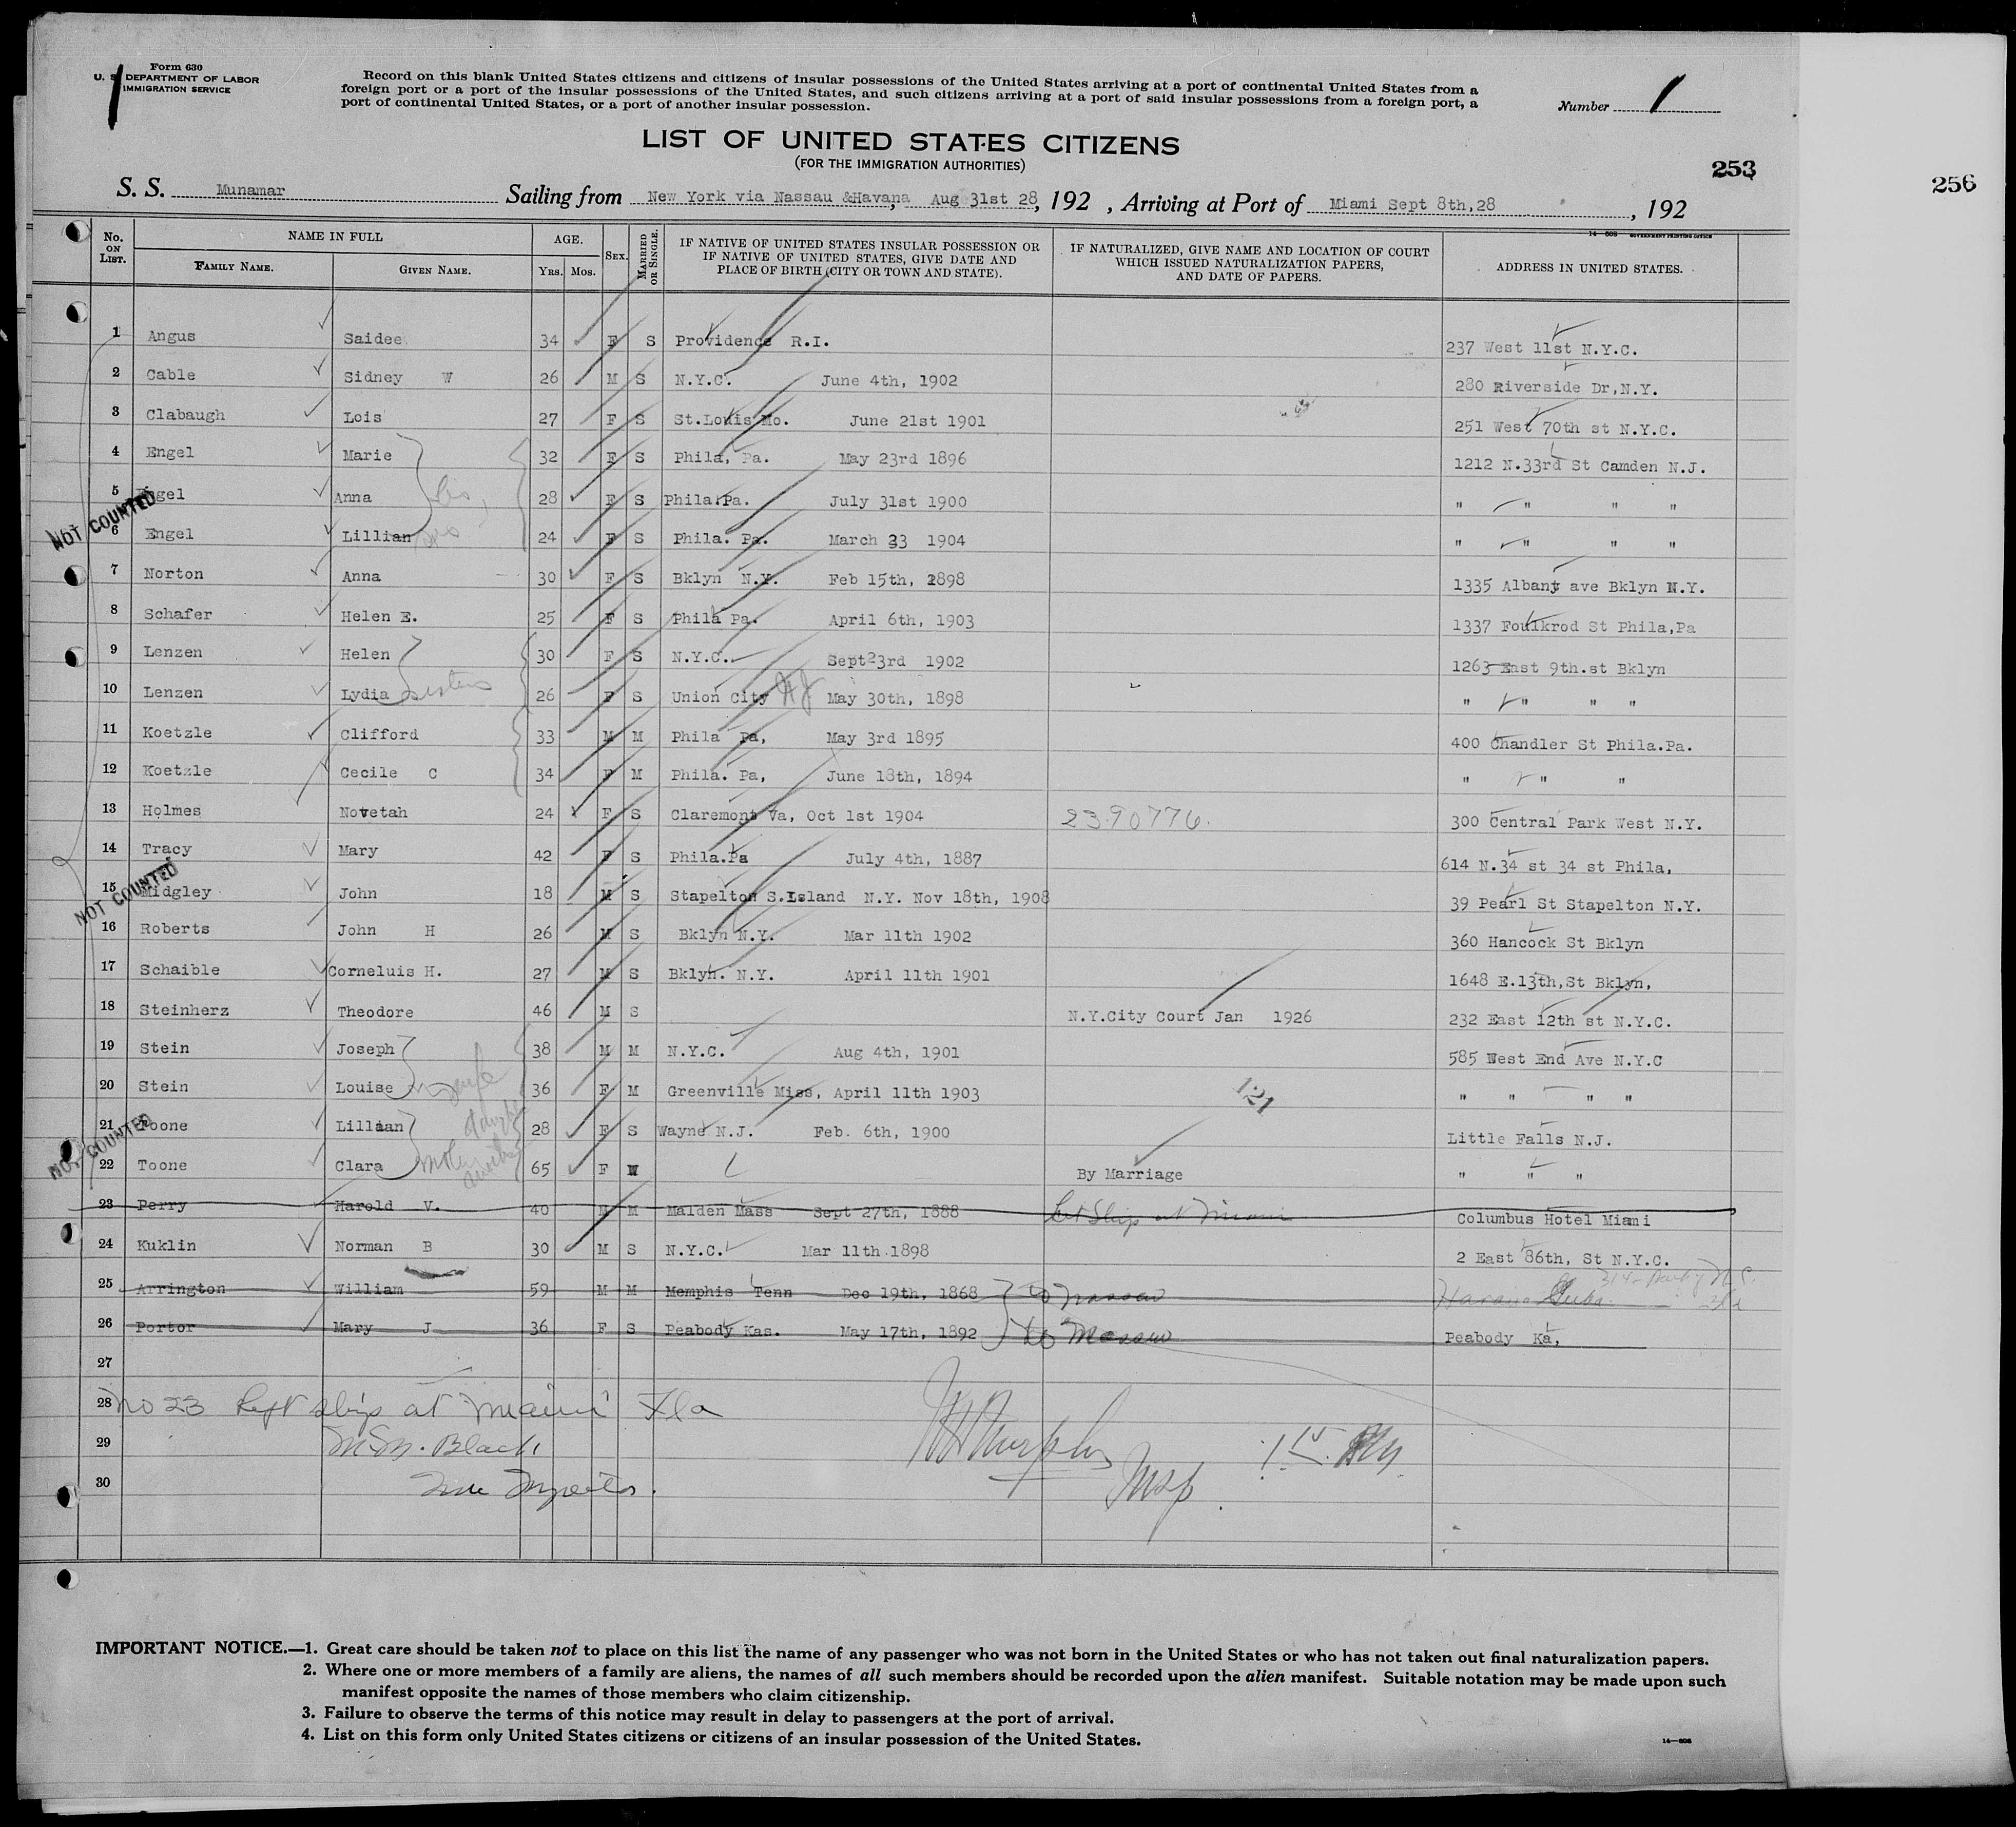 Form 630
U. S. DEPARTMENT OF LABOR
IMMIGRATION SERVICE
Record on this blank United States citizens and citizens of insular possessions of the United States arriving at a port of continental United States from a
foreign port or a port of the insular possessions of the United States, and such citizens arriving at a port of said insular possessions from a foreign port, a
port of continental United States, or a port of another insular possession.
Number 1
LIST OF UNITED STATES CITIZENS
(FOR THE IMMIGRATION AUTHORITIES)
253
256
S. S. Munamar Sailing from New York via Nassau &Havana, Aug 31st 28, 192 , Arriving at Port of Miami Sept 8th,28 , 192
14—608 GOVERNMENT PRINTING OFFICE
No. ON LIST. NAME IN FULL AGE. SEX. MARRIED OR SINGLE. IF NATIVE OF UNITED STATES INSULAR POSSESSION OR IF NATIVE OF UNITED STATES, GIVE DATE AND PLACE OF BIRTH (CITY OR TOWN AND STATE). IF NATURALIZED, GIVE NAME AND LOCATION OF COURT WHICH ISSUED NATURALIZATION PAPERS, AND DATE OF PAPERS. ADDRESS IN UNITED STATES.
FAMILY NAME. GIVEN NAME. YRS. MOS.
1 Angus Saidee 34 F S Providence R.I. 237 West 11st N.Y.C.
2 Cable Sidney W 26 M S N.Y.C. June 4th, 1902 280 Riverside Dr,N.Y.
3 Clabaugh Lois 27 F S St.Louis Mo. June 21st 1901 251 West 70th st N.Y.C.
4 Engel Marie 32 F S Phila, Pa. May 23rd 1896 1212 N.33rd St Camden N.J.
5 Engel Anna 28 F S Phila.Pa. July 31st 1900 " " " "
NOT COUNTED
6 Engel Lillian 24 F S Phila. Pa. March 23 1904 " " " "
7 Norton Anna 30 F S Bklyn N.Y. Feb 15th, 1898 1335 Albany ave Bklyn N.Y.
8 Schafer Helen E. 25 F S Phila Pa. April 6th, 1903 1337 Foulkrod St Phila,Pa
9 Lenzen Helen 30 F S N.Y.C. Sept23rd 1902 1263 East 9th.st Bklyn
10 Lenzen Lydia sisters 26 F S Union City NJ May 30th, 1898 " " " "
11 Koetzle Clifford 33 M M Phila Pa, May 3rd 1895 400 Chandler St Phila.Pa.
12 Koetzle Cecile C 34 F M Phila. Pa, June 18th, 1894 " " "
13 Holmes Novetah 24 F S Claremont Va, Oct 1st 1904 23.90776. 300 Central Park West N.Y.
14 Tracy Mary 42 F S Phila.Pa July 4th, 1887 614 N.34 st 34 st Phila,
15 Midgley John 18 M S Stapelton S.Island N.Y. Nov 18th, 1908 39 Pearl St Stapelton N.Y.
NOT COUNTED
16 Roberts John H 26 M S Bklyn N.Y. Mar 11th 1902 360 Hancock St Bklyn
17 Schaible Corneluis H. 27 M S Bklyn. N.Y. April 11th 1901 1648 E.13th,St Bklyn,
18 Steinherz Theodore 46 M S N.Y.City Court Jan 1926 232 East 12th st N.Y.C.
19 Stein Joseph 38 M M N.Y.C. Aug 4th, 1901 585 West End Ave N.Y.C
20 Stein Louise wife 36 F M Greenville Miss, April 11th 1903 " " " "
121
21 Toone Lillian 28 F S Wayne N.J. Feb. 6th, 1900 Little Falls N.J.
NOT COUNTED
22 Toone Clara mother 65 F W By Marriage " " "
23 Perry Harold V. 40 M M Malden Mass Sept 27th, 1888 Left Ship at Miami Columbus Hotel Miami
24 Kuklin Norman B 30 M S N.Y.C. Mar 11th 1898 2 East 86th, St N.Y.C.
25 Arrington William 59 M M Memphis Tenn Dec 19th, 1868 to Nassau Havana Cuba
26 Portor Mary J 36 F S Peabody Kas. May 17th, 1892 to Nassau Peabody Ka,
27
28 No 23 Left ship at Miami Fla
29 Black
30
Insp.
IMPORTANT NOTICE.—1. Great care should be taken not to place on this list the name of any passenger who was not born in the United States or who has not taken out final naturalization papers.
2. Where one or more members of a family are aliens, the names of all such members should be recorded upon the alien manifest. Suitable notation may be made upon such
manifest opposite the names of those members who claim citizenship.
3. Failure to observe the terms of this notice may result in delay to passengers at the port of arrival.
4. List on this form only United States citizens or citizens of an insular possession of the United States.
14—608